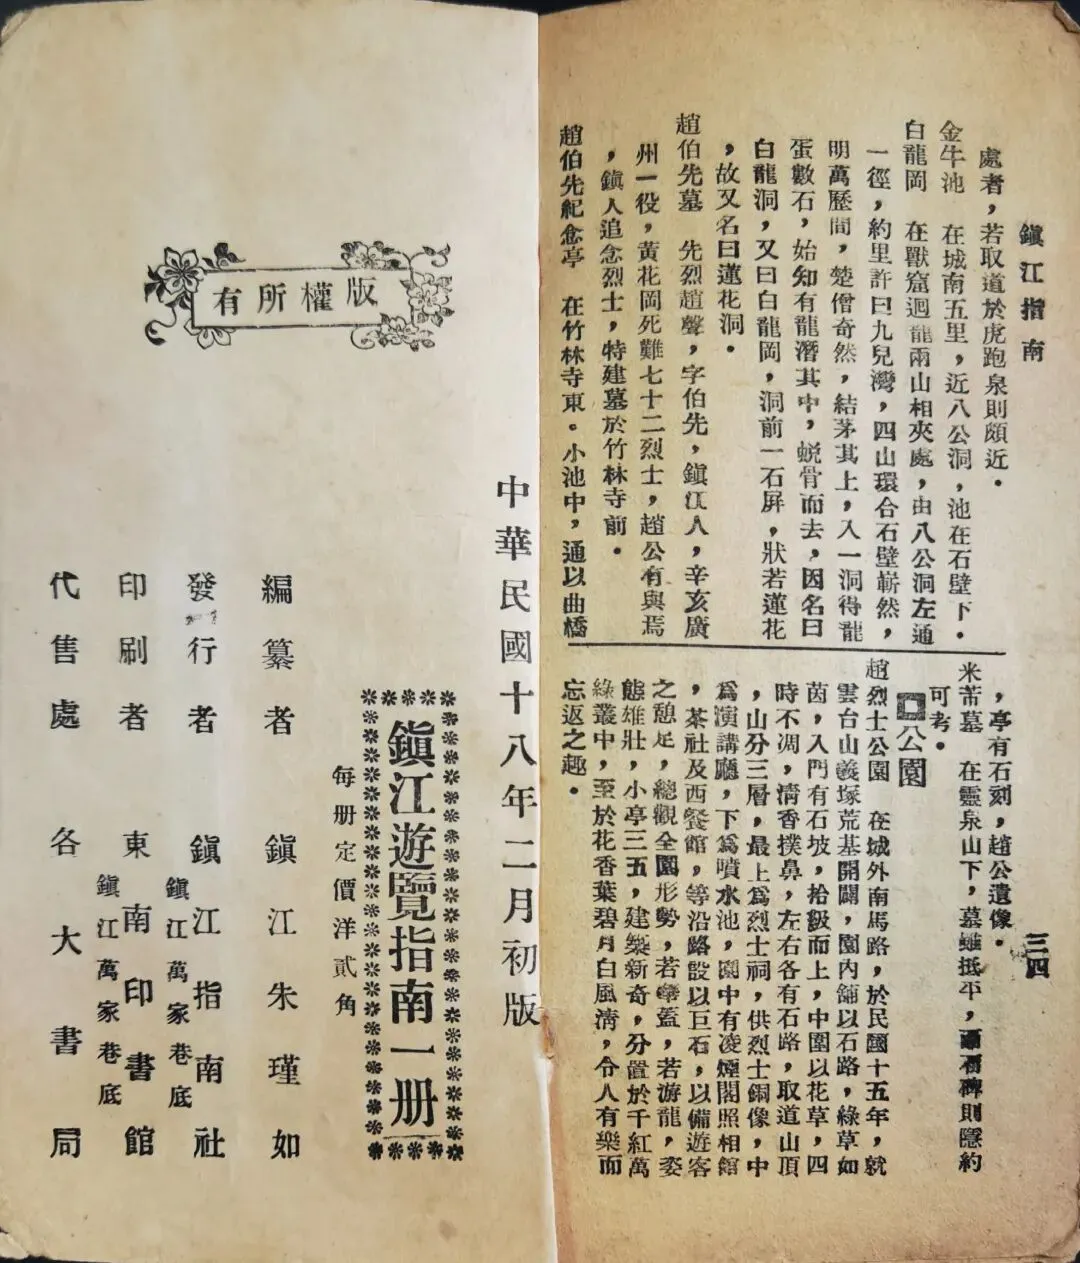 鎮江指南
三四
處者，若取道於虎跑泉則頗近．
金牛池　在城南五里，近八公洞，池在石壁下．
白龍岡　在獸窟迴龍兩山相夾處，由八公洞左通
一徑，約里許曰九兒灣，四山環合石壁嶄然，
明萬歷間，楚僧奇然，結茅其上，入一洞得龍
蛋數石，始知有龍潛其中，蛻骨而去，因名曰
白龍洞，又曰白龍岡，洞前一石屏，狀若蓮花
，故又名曰蓮花洞．
趙伯先墓　先烈趙聲，字伯先，鎮江人，辛亥廣
州一役，黃花岡死難七十二烈士，趙公有與焉
，鎮人追念烈士，特建墓於竹林寺前．
趙伯先紀念亭　在竹林寺東。小池中，通以曲橋
，亭有石刻，趙公遺像．
米芾墓　在靈泉山下，墓雖抵平，碑則隱約
可考．
公園
趙烈士公園　在城外南馬路，於民國十五年，就
雲台山義塚荒基開闢，園內舖以石路，綠草如
茵，入門有石坡，拾級而上，中圍以花草，四
時不凋，清香撲鼻，左右各有石路，取道山頂
，山分三層，最上為烈士祠，供烈士銅像，中
為演講廳，下為噴水池，園中有凌煙閣照相館
，茶社及西餐館，等沿路設以巨石，以備遊客
之憩足，總觀全園形勢，若華蓋，若游龍，姿
態雄壯，小亭三五，建築新奇，分置於千紅萬
綠叢中，至於花香葉碧月白風清，令人有樂而
忘返之趣．
版權所有
中華民國十八年二月初版
鎮江遊覽指南一册
每册定價洋貳角
編纂者　鎮江朱瑾如
發行者　鎮江指南社
鎮江萬家巷底
印刷者　東南印書館
鎮江萬家巷底
代售處　各大書局